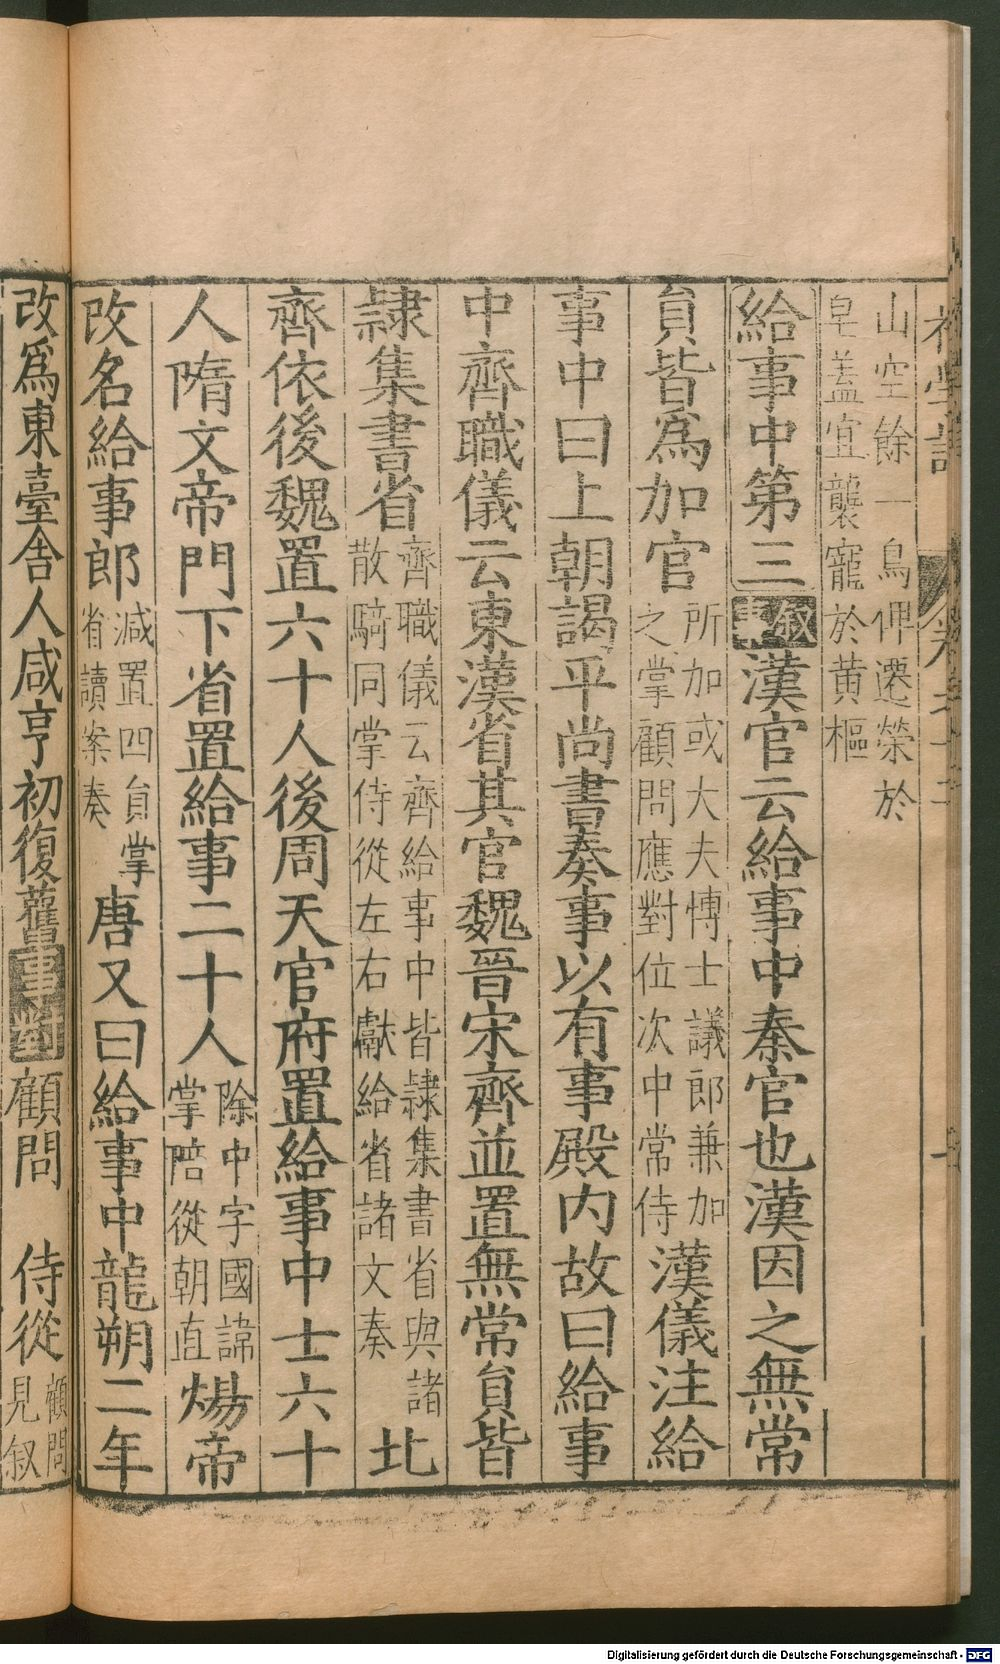 初學記
卷之十二
山空餘一鳥俾遷榮於
皁盖宜襲寵於黄樞
給事中第三叙事漢官云給事中秦官也漢因之無常
貟皆爲加官所加或大夫博士議郎兼加之掌顧問應對位次中常侍漢儀注給
事中曰上朝謁平尚書奏事以有事殿内故曰給事
中齊職儀云東漢省其官魏晉宋齊並置無常貟皆
隷集書省齊職儀云齊給事中皆隷集書省與諸散騎同掌侍從左右獻給省諸文奏北
齊依後魏置六十人後周天官府置給事中士六十
人隋文帝門下省置給事二十人除中字國諱掌陪從朝直煬帝
改名給事郎減置四貟掌省讀案奏唐又曰給事中龍朔二年
改爲東臺舍人咸亨初復舊事對顧問 侍從顧問見叙
Digitalisierung gefördert durch die Deutsche Forschungsgemeinschaft - DFG